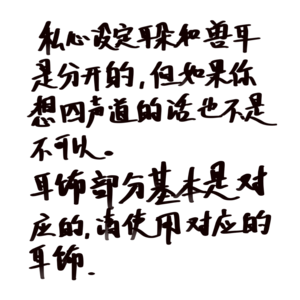 私心设定耳朵和兽耳
是分开的,但如果你
想四声道的话也不是
不可以。
耳饰部分基本是对
应的,请使用对应的
耳饰.